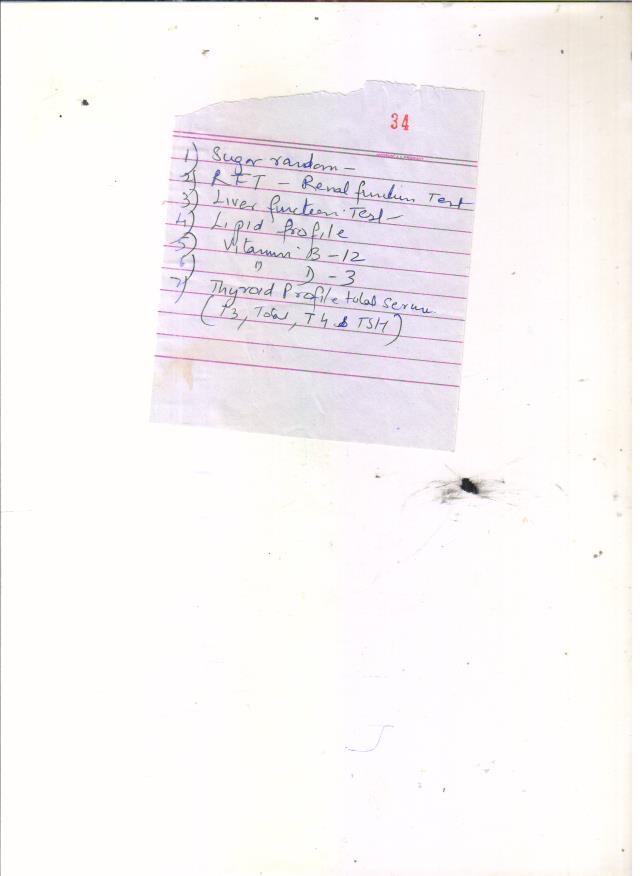 34
1) Sugar random -
2) RFT - Renal function Test
3) Liver function Test -
4) Lipid profile
5) Vitamin B - 12
6) " D - 3
7) Thyroid Profile total Serum
(T3, Total, T4 & TSH)